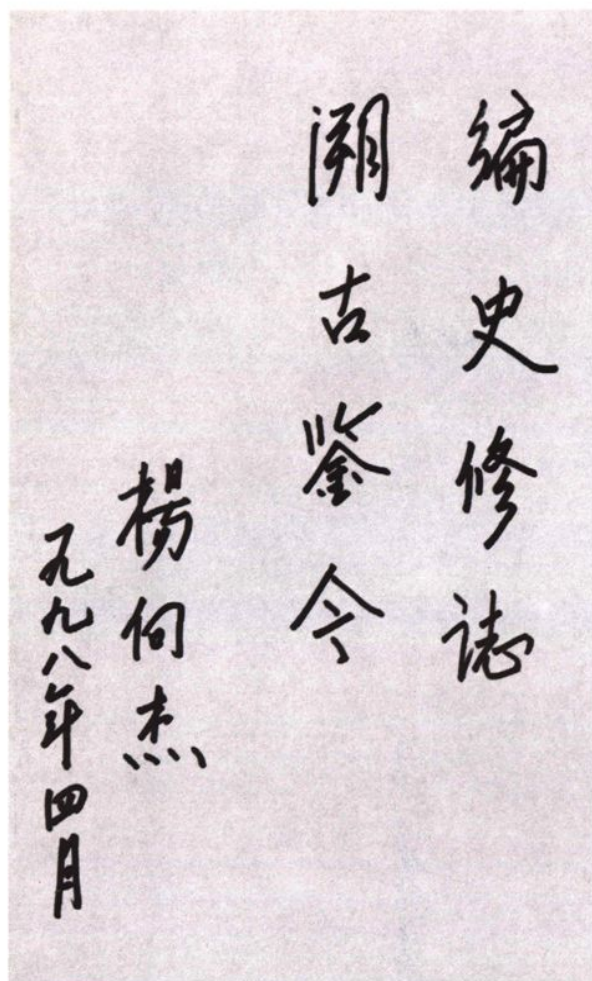 编史修誌
溯古鉴今
楊向杰
一九九八年四月